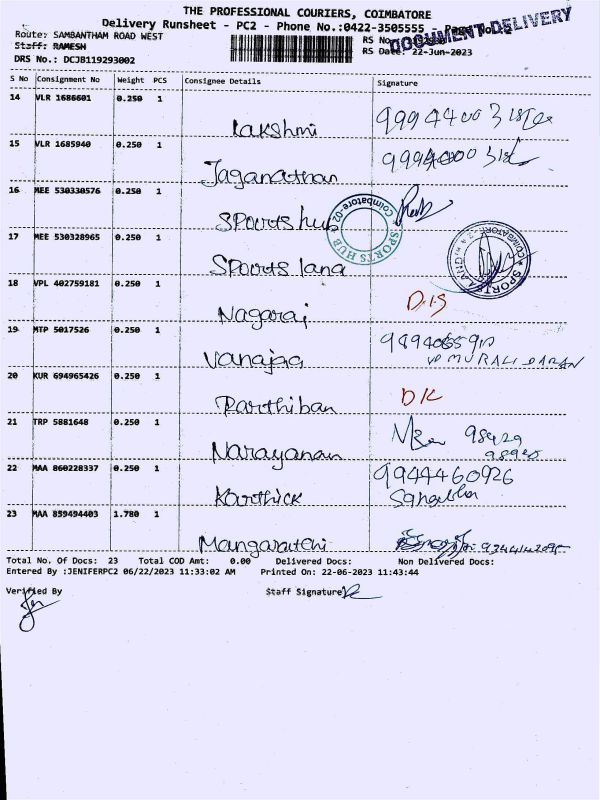 THE PROFESSIONAL COURIERS, COIMBATORE
Delivery Runsheet - PC2 - Phone No.:0422-3505555 - Page No.:2
DOCUMENT DELIVERY
Route: SAMBANTHAM ROAD WEST RS No.:
Staff: RAMESH RS Date: 22-Jun-2023
DRS No.: DCJB119293002
S No Consignment No Weight PCS Consignee Details Signature
14 VLR 1686601 0.250 1
Lakshmi
15 VLR 1685940 0.250 1
Jaganathan
16 MEE 530330576 0.250 1
Sports hub
Coimbatore-02 SPORTS HUB
17 MEE 530328965 0.250 1
Sports land
18 VPL 402759181 0.250 1
Nagaraj D.is
19 MTP 5017526 0.250 1
Vanajaa MURALI DARAN
20 KUR 694965426 0.250 1
Parthiban DK
21 TRP 5881648 0.250 1
Narayanan 98429
22 MAA 860228337 0.250 1 9944460926
Karthick
23 MAA 859494403 1.780 1
Total No. Of Docs: 23 Total COD Amt: 0.00 Delivered Docs: Non Delivered Docs:
Entered By :JENIFERPC2 06/22/2023 11:33:02 AM Printed On: 22-06-2023 11:43:44
Verified By Staff Signature